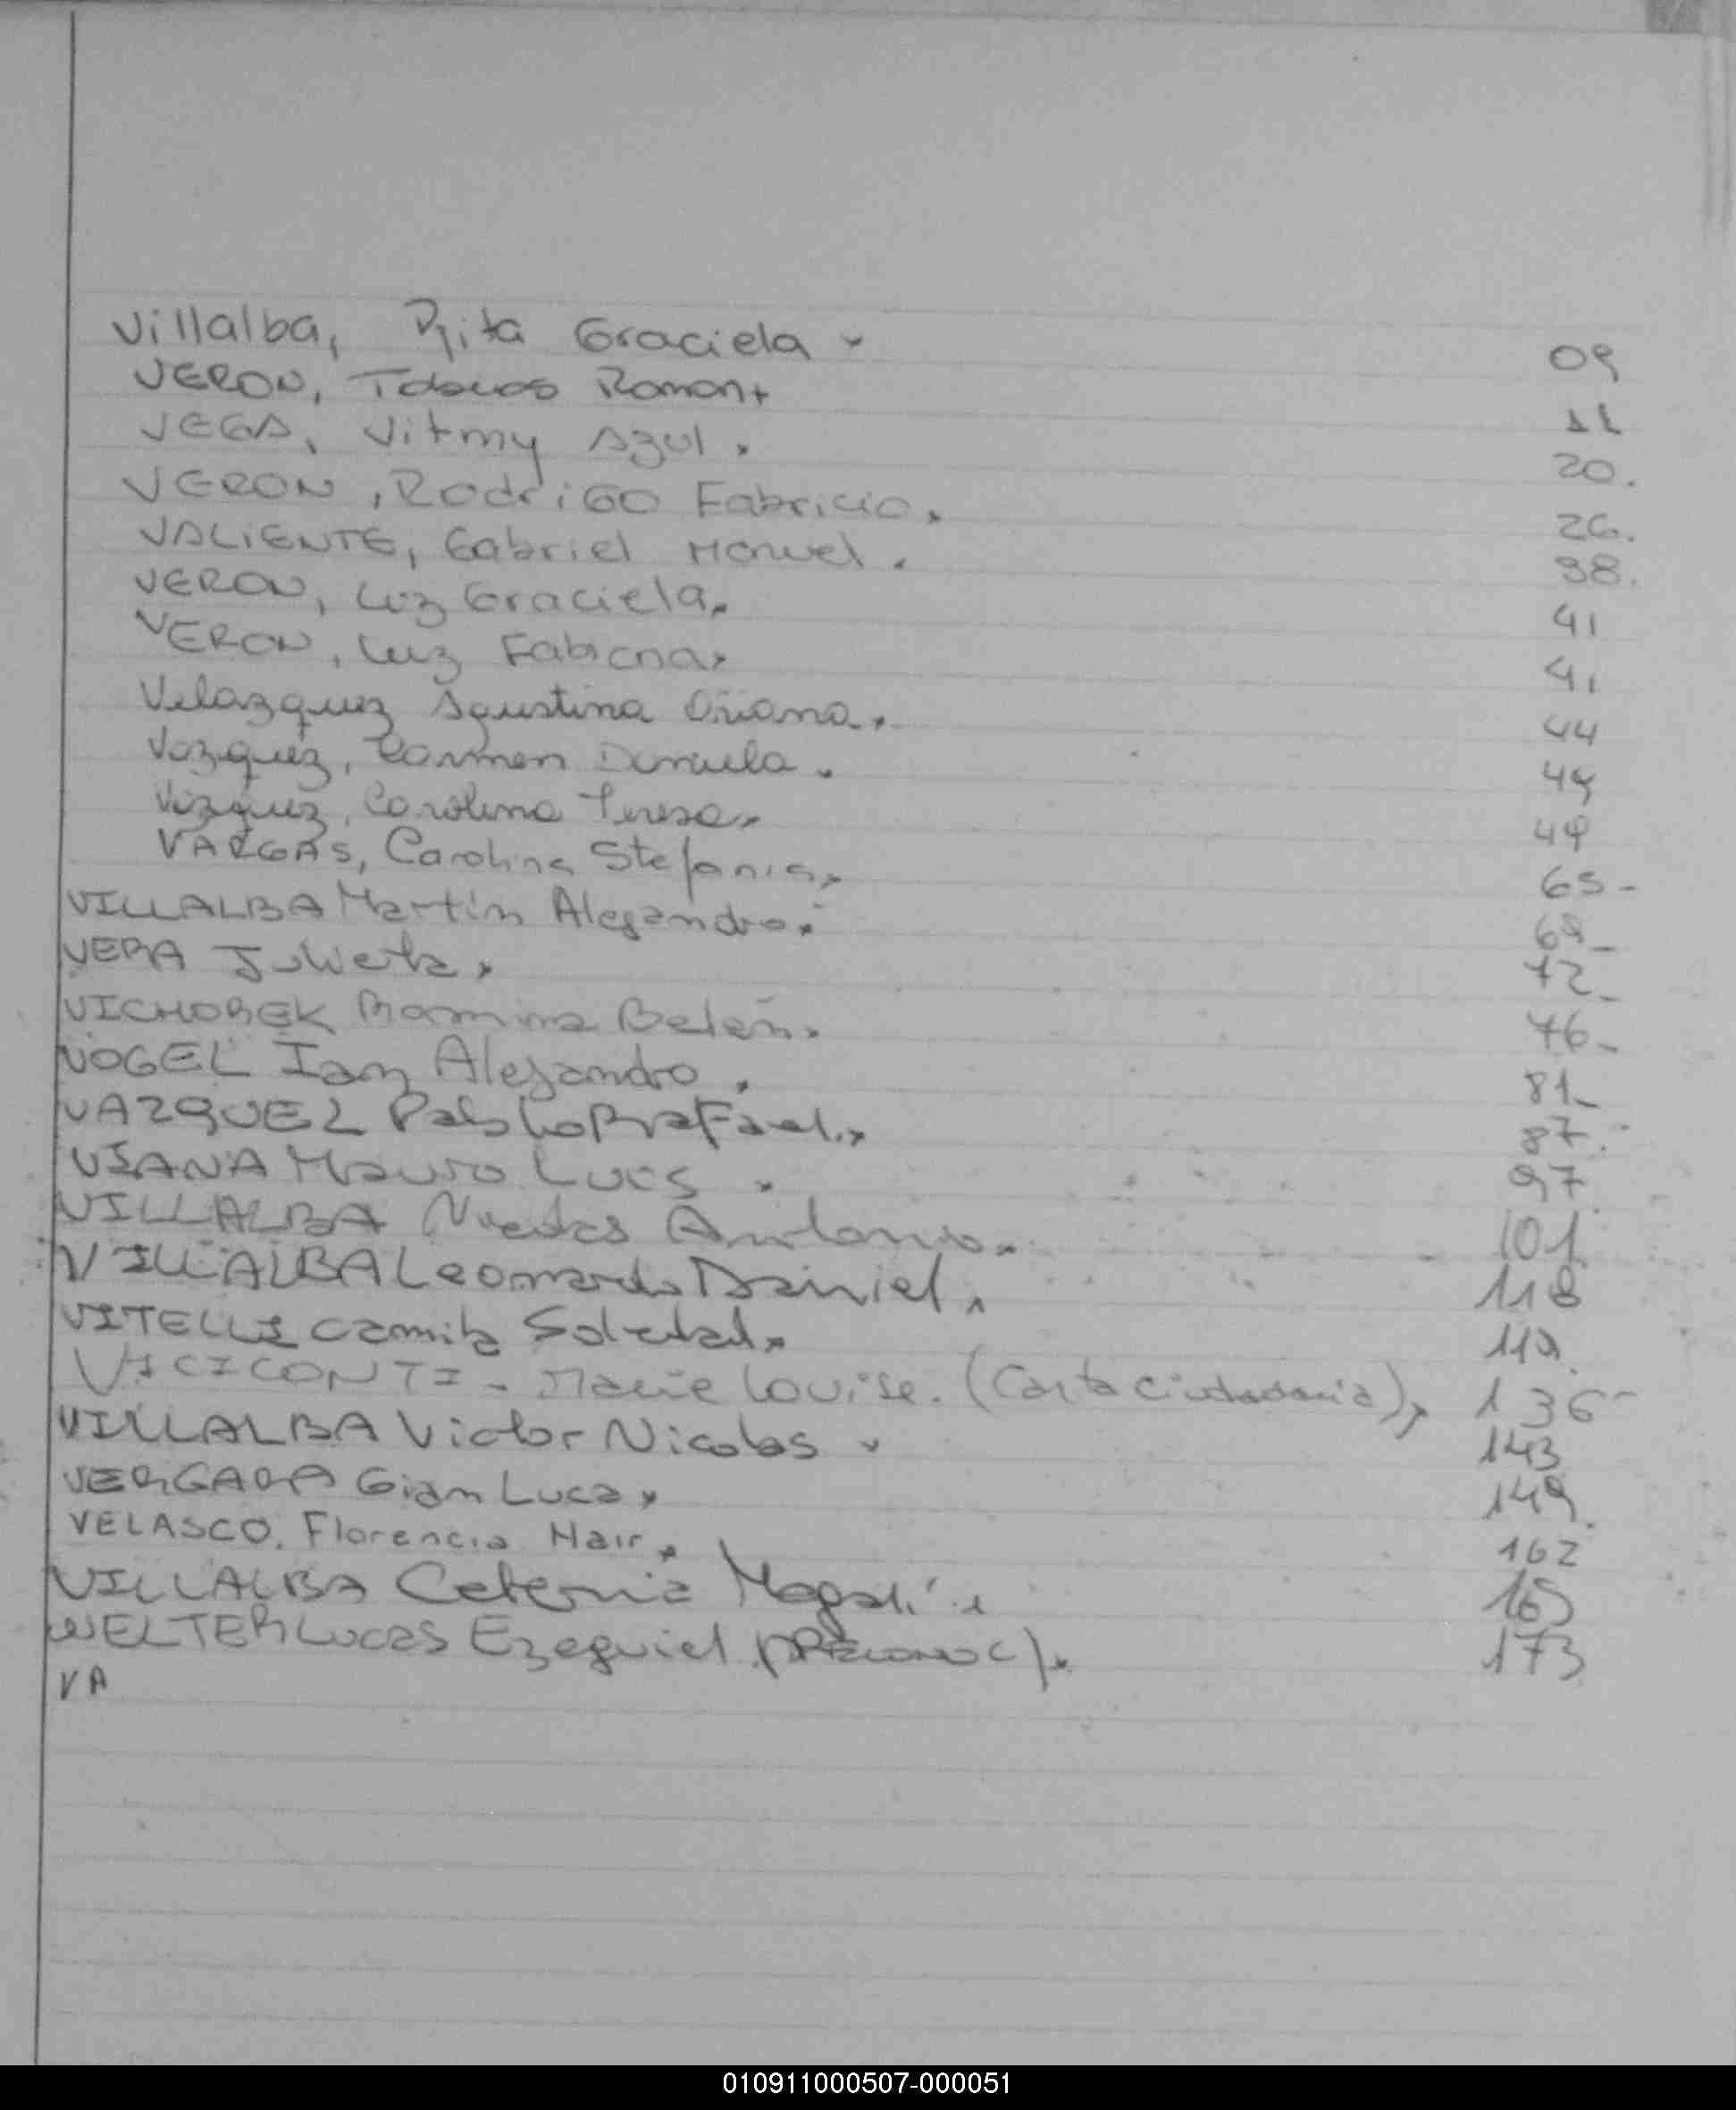 Villalba, Rita Graciela 09
VERON, Tobias Roman 11
VEGA, Vitmy Azul. 20.
VERON, RodriGO Fabricio. 26.
VALIENTE, Gabriel Manuel. 38.
VERON, Luz Graciela. 41
VERON, Luz Fabiana 41
Velazquez Agustina Oriana. 44
Vazquez, Carmen Daniela. 49
Vazquez, Carolina Teresa 49
VARGAS, Carolina Stefania 65-
VILLALBA Martín Alejandro. 69-
VERA Julieta 72-
VICHOREK Romina Belén. 76-
VOGEL Ian Alejandro. 81-
VAZQUEZ Pablo Rafael. 87.
VIANA Mauro Luis 97
VILLALBA Antonio 101
VILLALBA Leonardo Daniel. 118
VITELLI Camila Soledad 119.
VICICONTI - Marie Louise. (Carta Ciudadania) 136-
VILLALBA Victor Nicolas 143
VERGARA Gian Luca 149.
VELASCO. Florencia Nair 162
VILLALBA Magalí 165
WELTER Lucas Ezequiel 173
VA
010911000507-000051